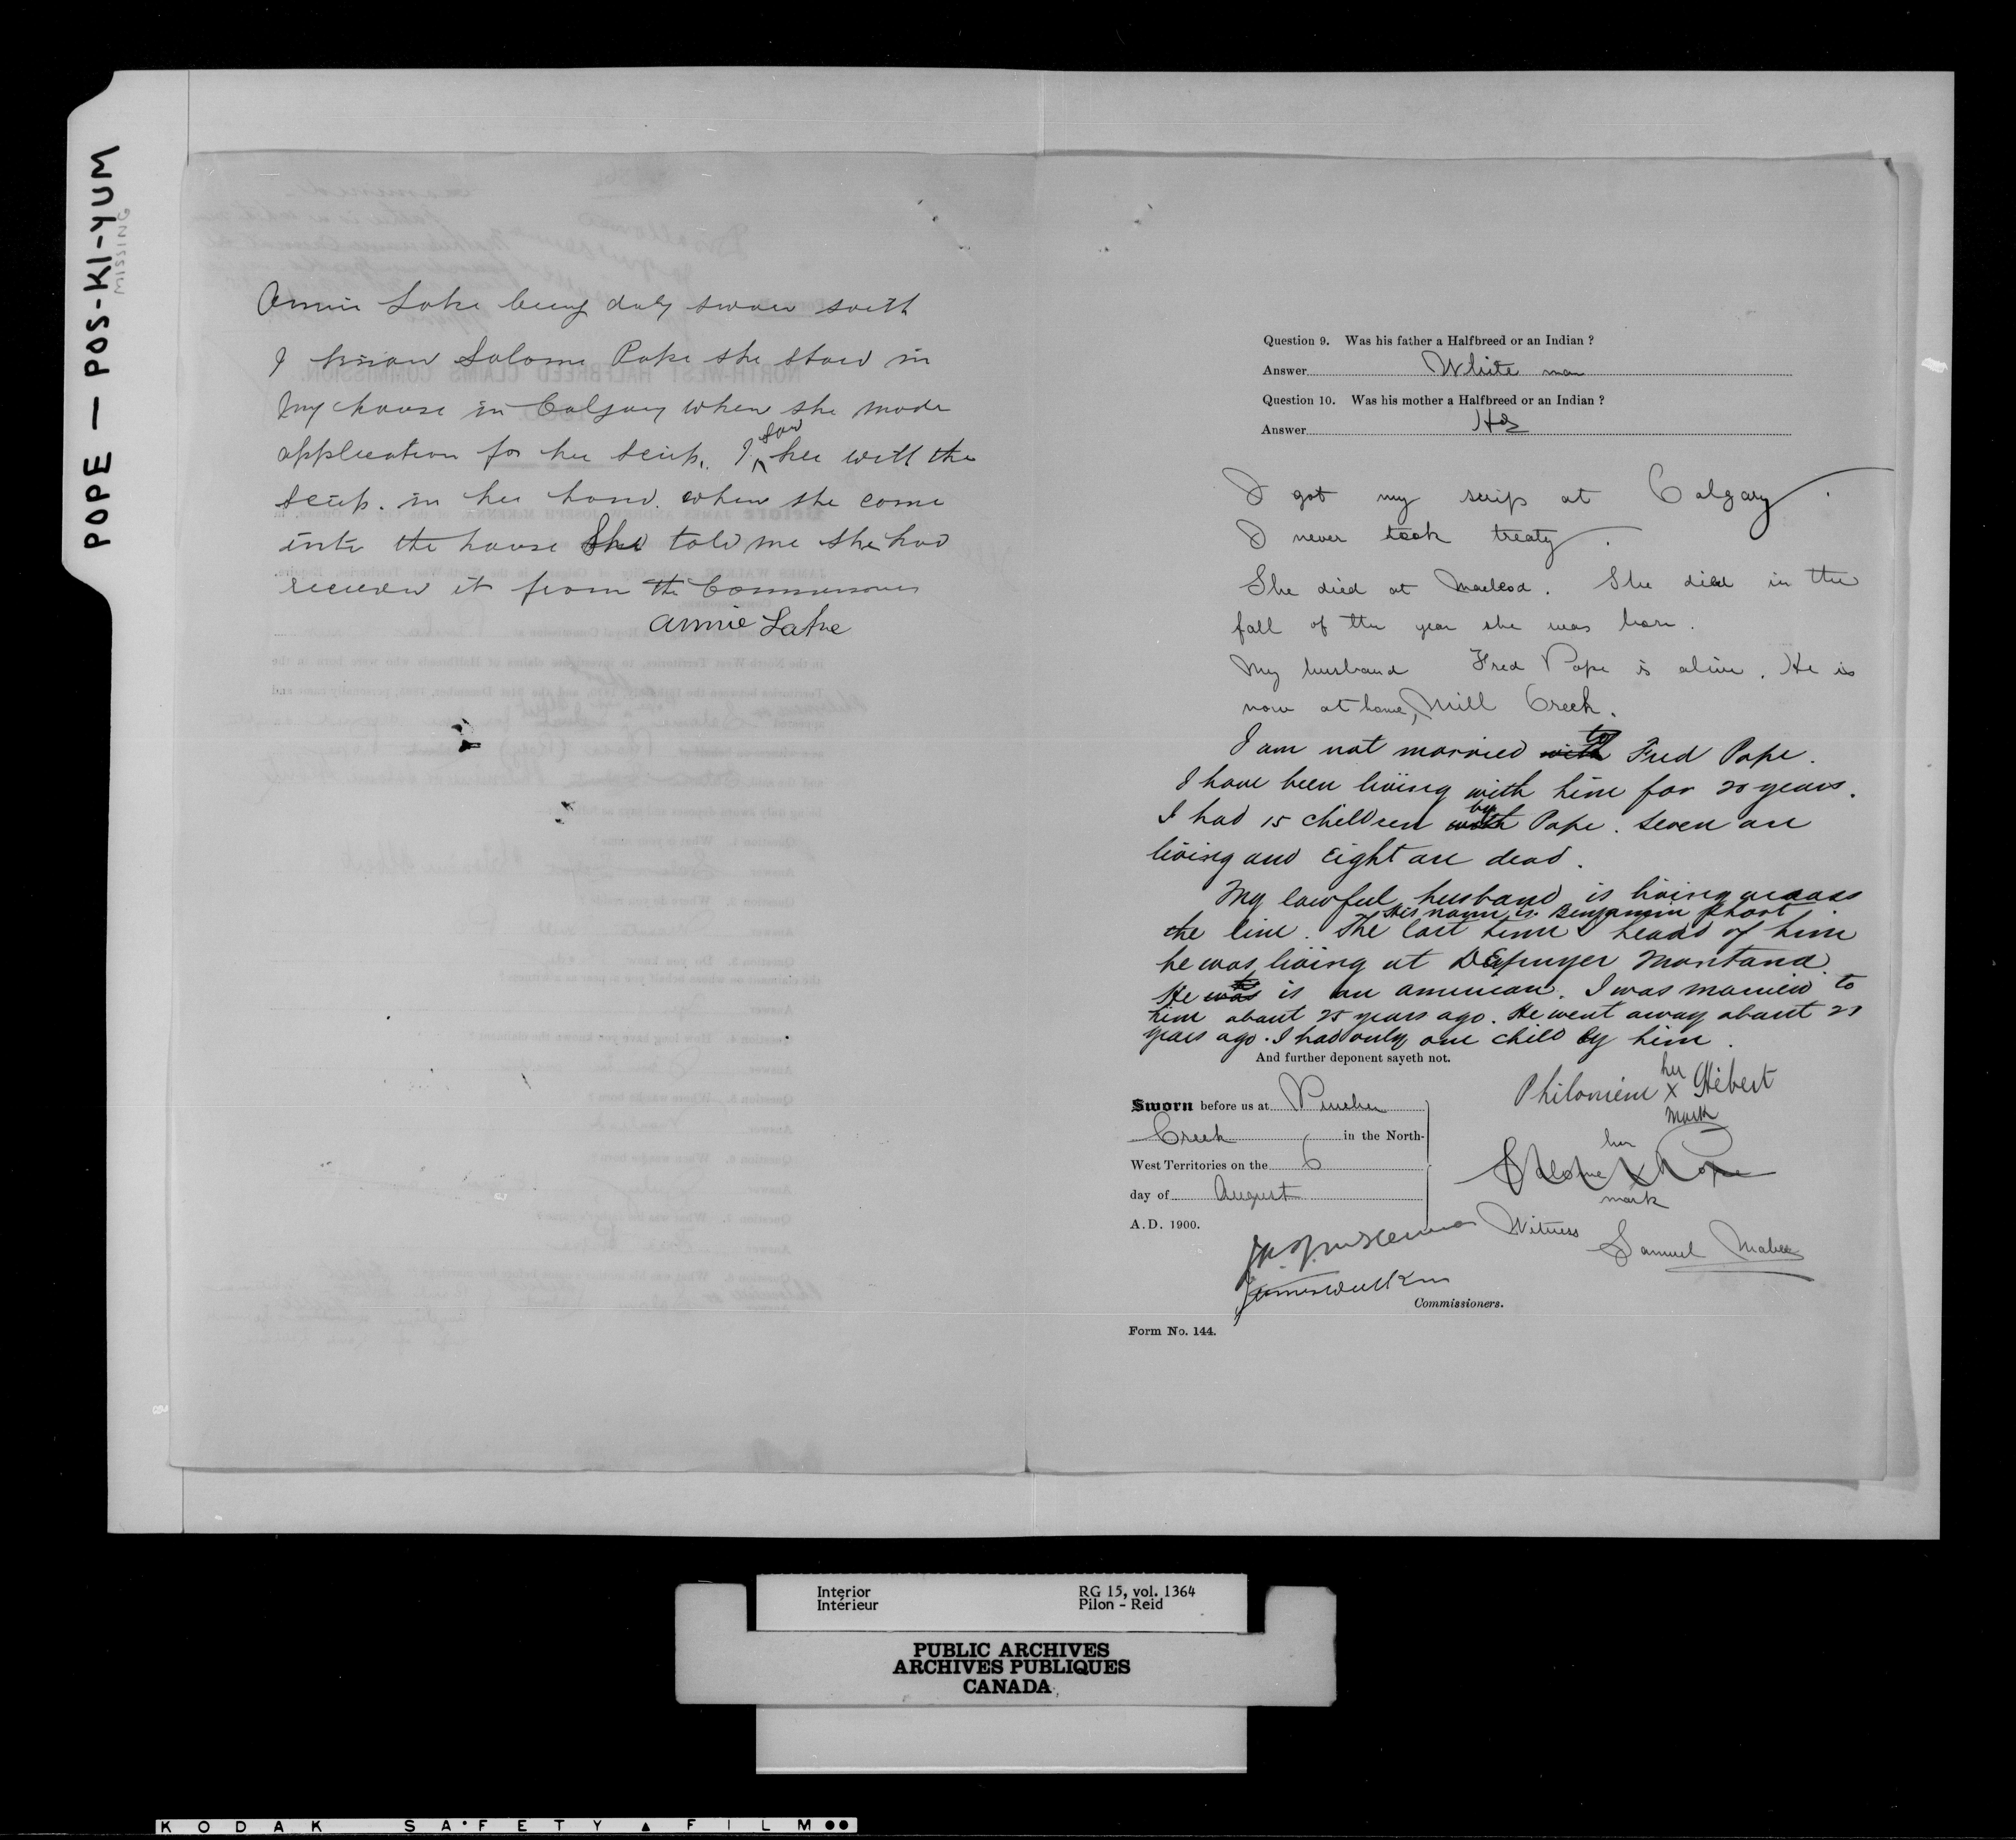 POPE — POS-KI-YUM
MISSING
Annie Lake being duly sworn saith
I know Salome Pope she staid in
my house in Calgary when she made
application for her scrip. I saw her with the
scrip. in her hand. when she come
into the house She told me she had
received it from the Commissioners
Annie Lake
Question 9. Was his father a Halfbreed or an Indian ?
Answer White man
Question 10. Was his mother a Halfbreed or an Indian ?
Answer Hb
I got my scrip at Calgary.
I never took treaty.
She died at Macleod. She died in the
fall of the year she was born.
My husband Fred Pope is alive. He is
now at home, Mill Creek.
I am not married with to Fred Pope.
I have been living with him for 20 years.
I had 15 children with by Pope. Seven are
living and Eight are dead.
My lawful husband is living across
the line. His name is Benjamin Short. The last time I heard of him
he was living at Depuyer Montana.
He was is an american. I was married to
him about 25 years ago. He went away about 20
years ago. I had only one child by him.
And further deponent sayeth not.
Philomène her x mark Hébert
Sworn before us at Pincher
Creek in the North-
West Territories on the 6
day of August
A.D. 1900.
Salome her x mark Pope
Witness Samuel Mabee
J.A.J. McKenna
James Walker
Commissioners.
Form No. 144.
Interior RG 15, vol. 1364
Intérieur Pilon - Reid
PUBLIC ARCHIVES
ARCHIVES PUBLIQUES
CANADA
KODAK SAFETY FILM